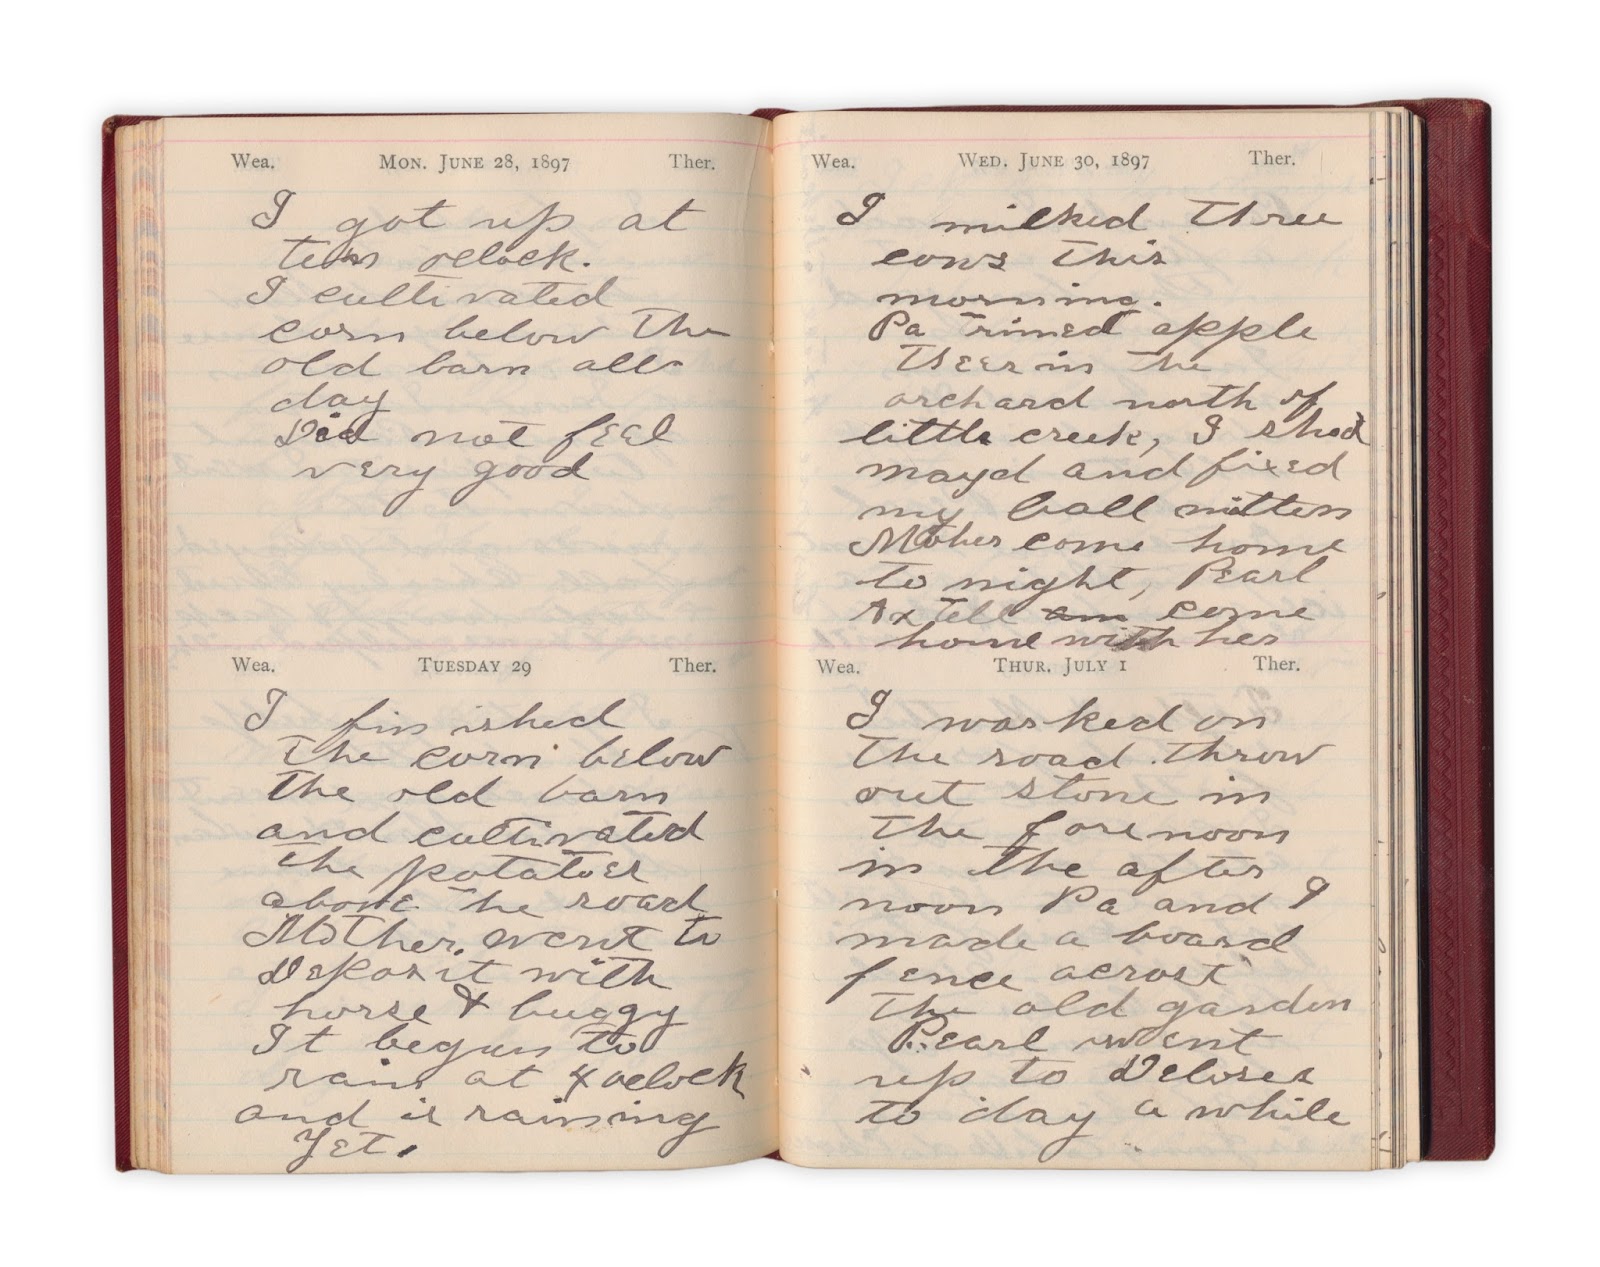 Wea. Mon. June 28, 1897 Ther.
I got up at
ten oclock.
I cultivated
corn below the
old barn all
day
Did not feel
very good
Wea. Tuesday 29 Ther.
I finished
the corn below
the old barn
and cultivated
the potatoes
above the road
Mother went to
Deposit with
horse & buggy
It begun to
rain at 4 oclock
and is raining
yet.
Wea. Wed. June 30, 1897 Ther.
I milked three
cows this
morning.
Pa trimed apple
in the
orchard north of
little creek, I shod
mayd and fixed
my ball mitten
Mother come home
to night, Pearl
Axtell come
home with her
Wea. Thur. July 1 Ther.
I worked on
the road throw
out stone in
the forenoon
in the after
noon Pa and I
made a board
fence acrost
the old garden
Pearl went
up to Deloses
to day a while